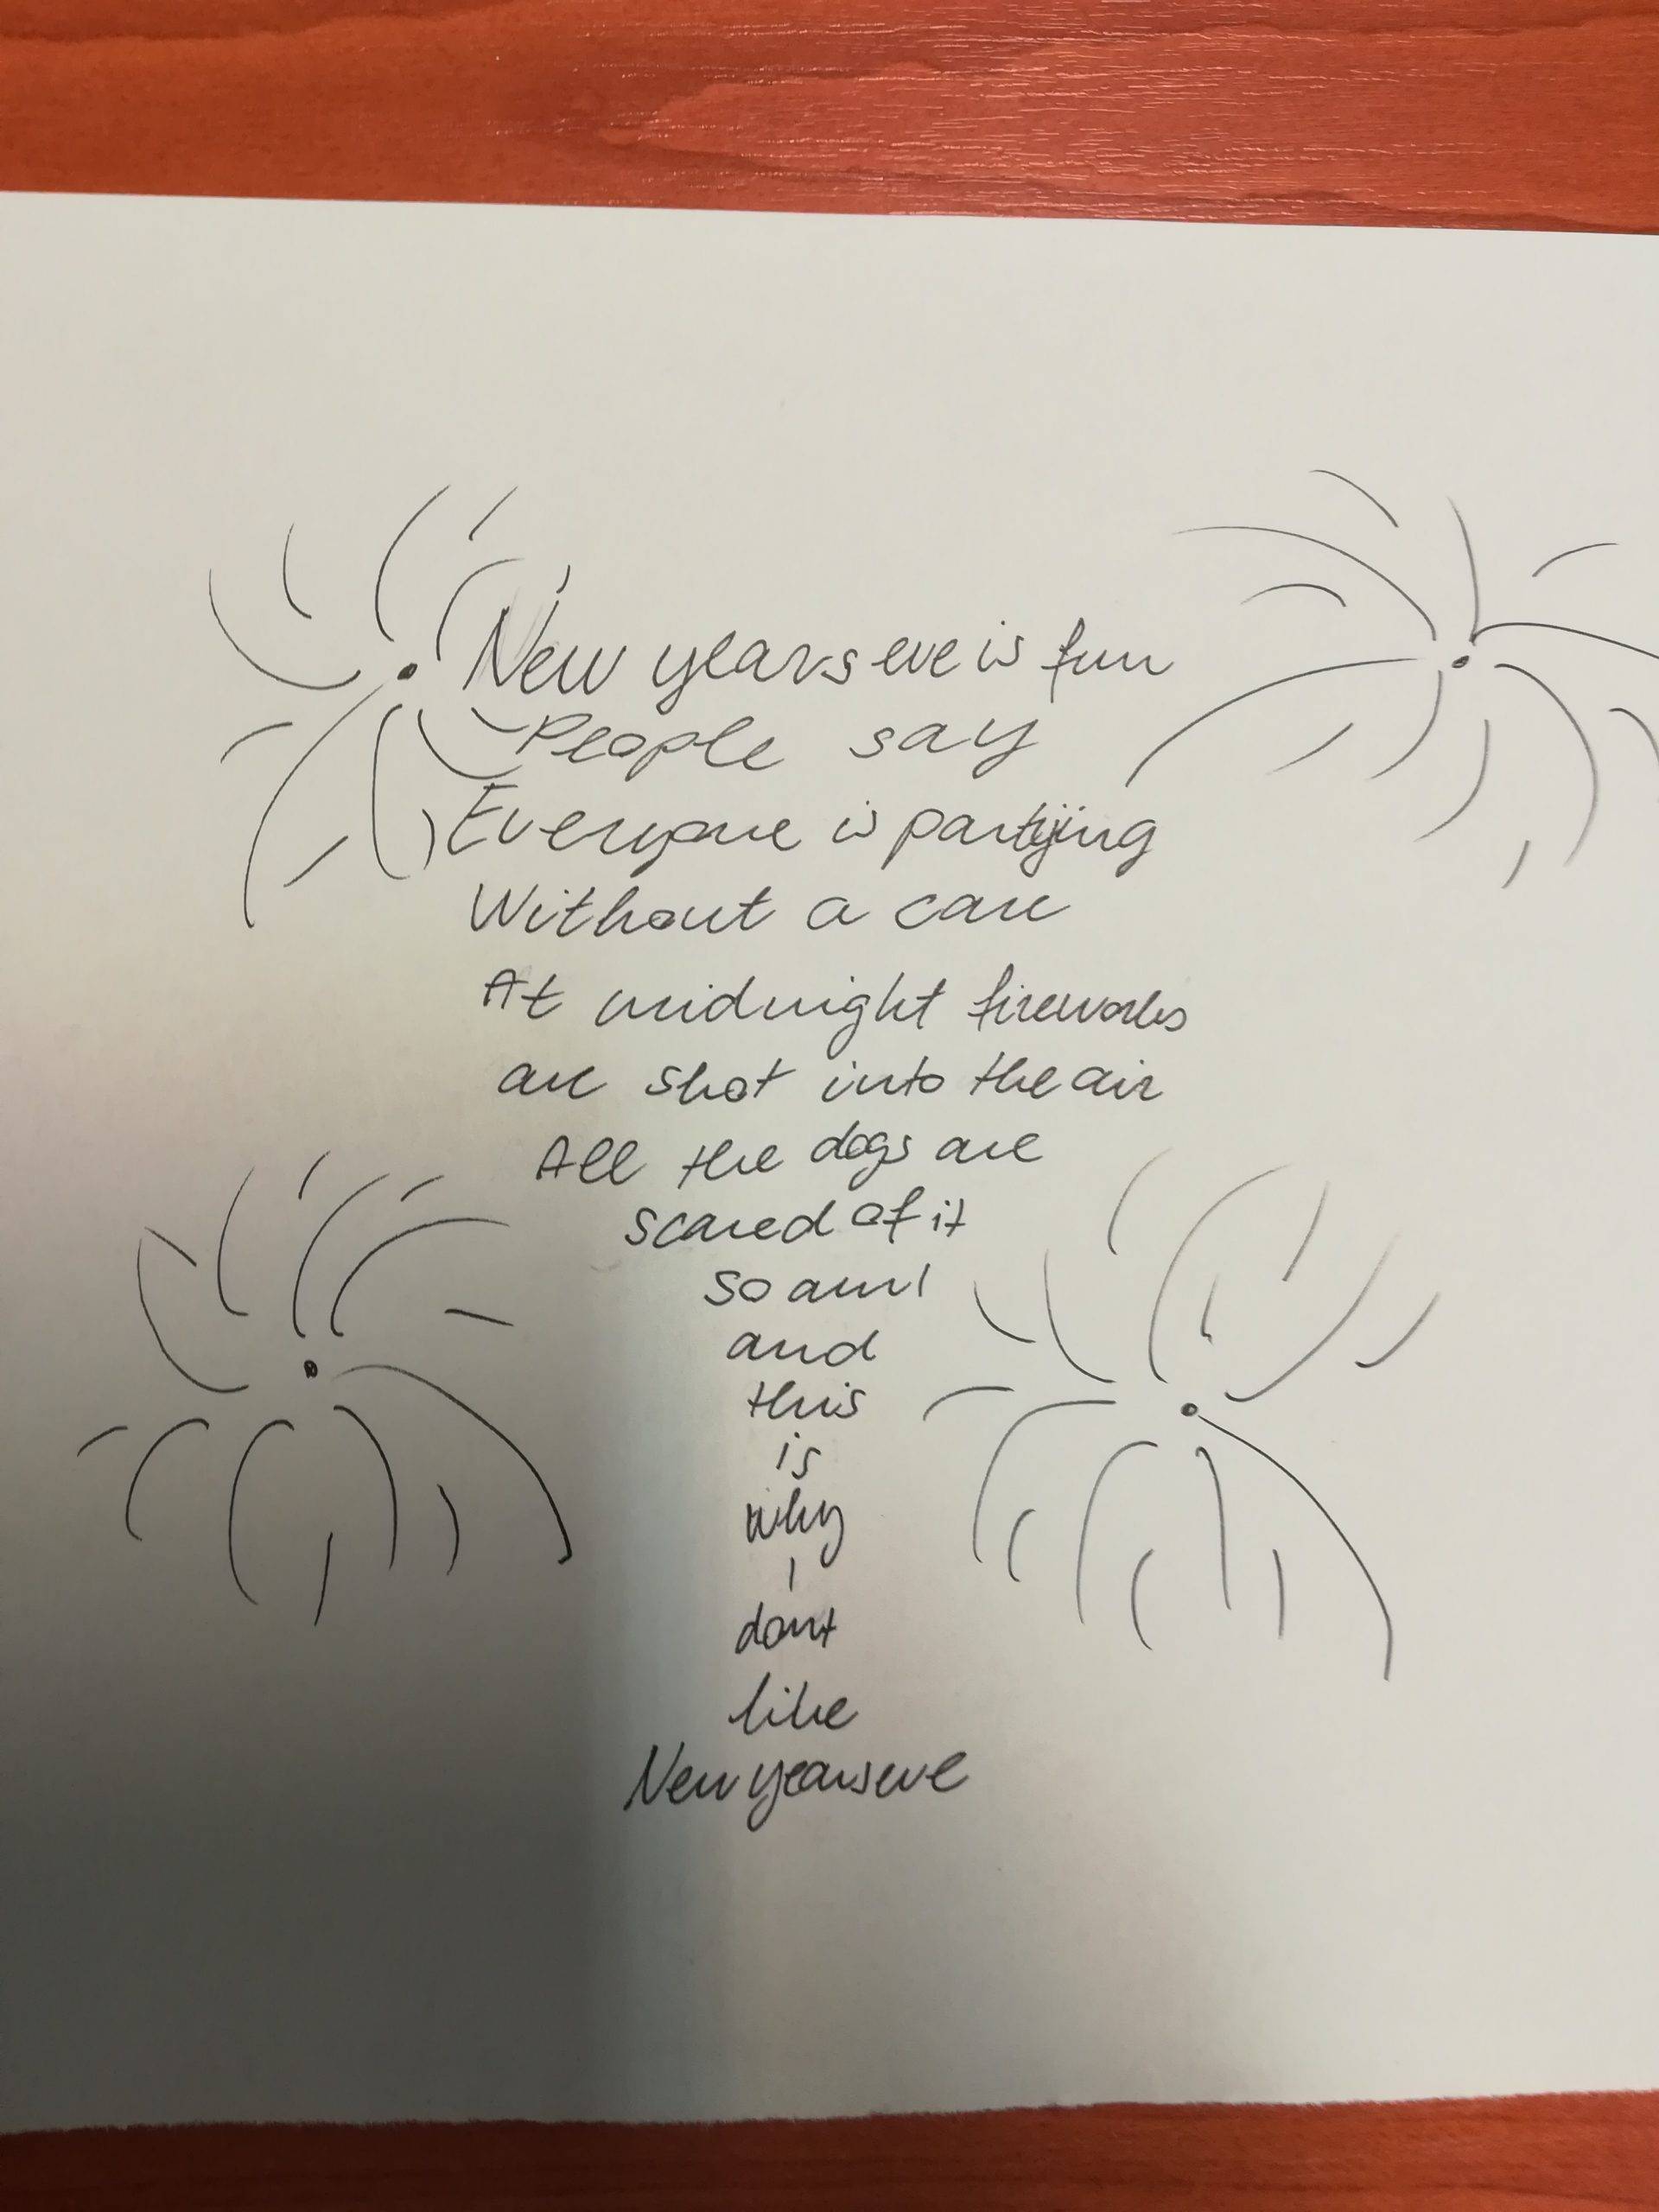 New years eve is fun
People say
Everyone is partying
Without a care
At midnight fireworks
are shot into the air
All the dogs are
scared of it
so am I
and
this
is
why
I
dont
like
New years eve